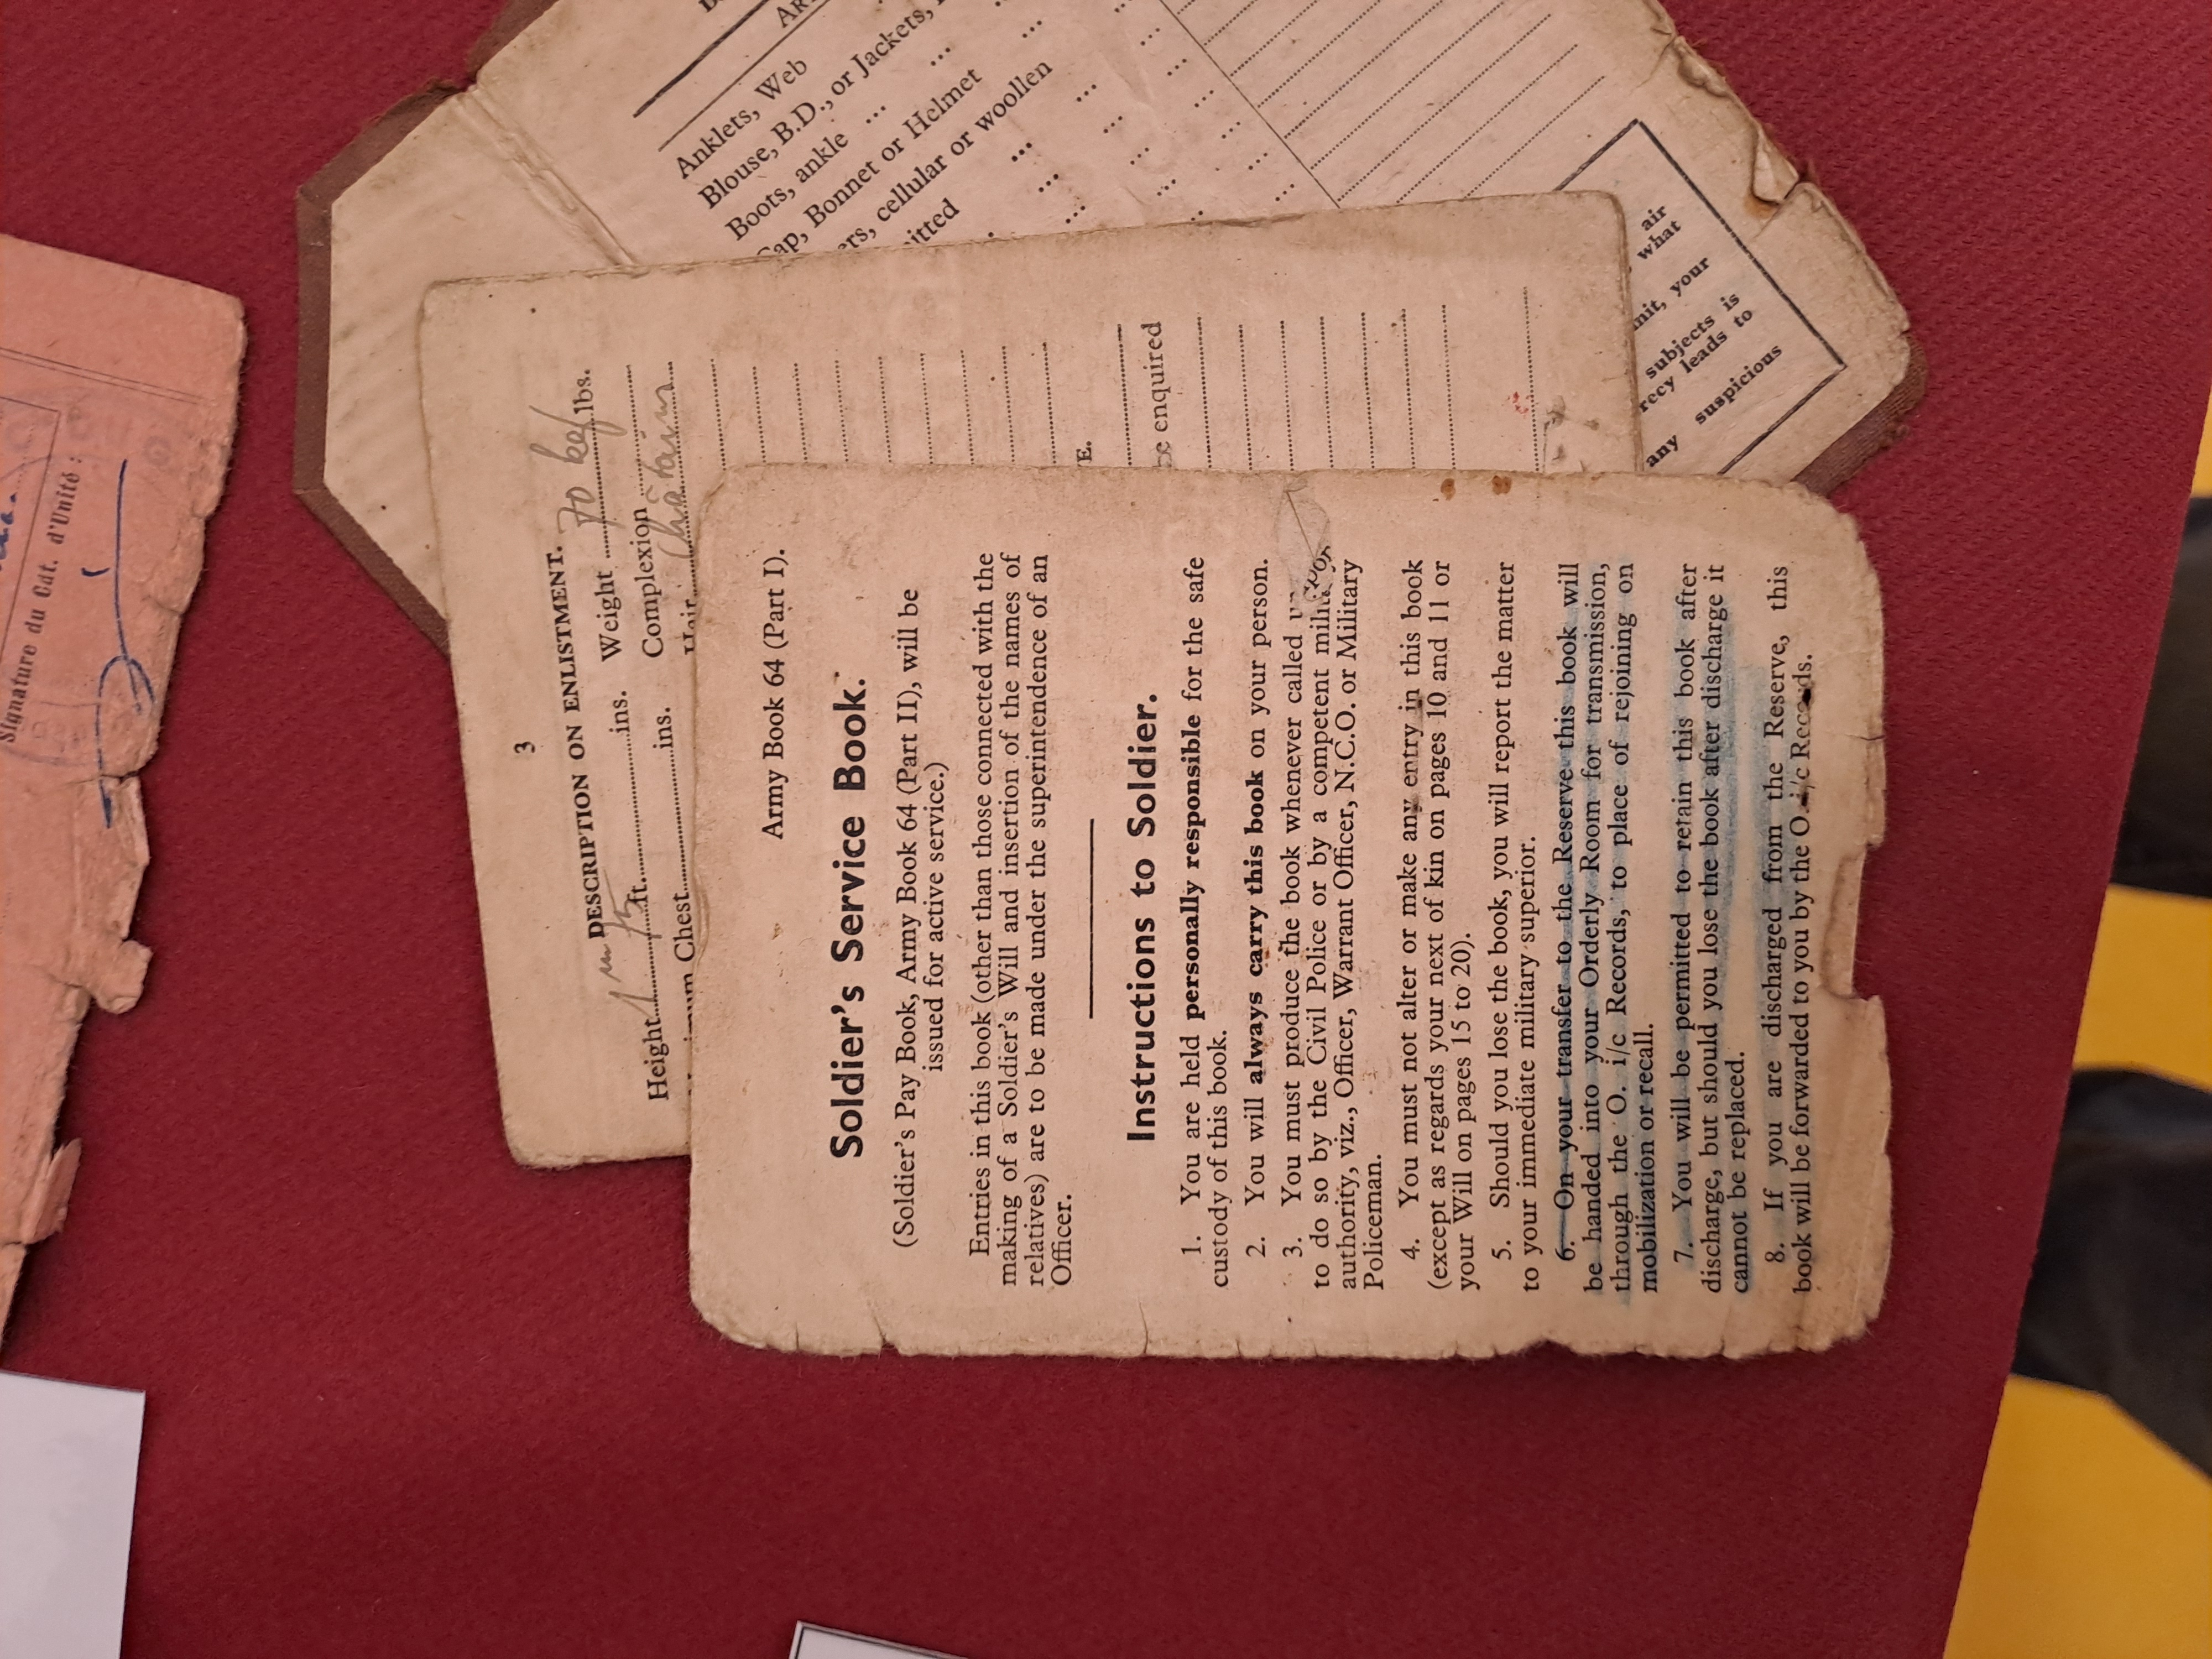 Army Book 64 (Part I).
Soldier's Service Book.
(Soldier's Pay Book, Army Book 64 (Part II), will be
issued for active service.)
Entries in this book (other than those connected with the
making of a Soldier's Will and insertion of the names of
relatives) are to be made under the superintendence of an
Officer.
Instructions to Soldier.
1. You are held personally responsible for the safe
custody of this book.
2. You will always carry this book on your person.
3. You must produce the book whenever called
to do so by the Civil Police or by a competent
authority, viz., Officer, Warrant Officer, N.C.O. or Military
Policeman.
4. You must not alter or make any entry in this book
(except as regards your next of kin on pages 10 and 11 or
your Will on pages 15 to 20).
5. Should you lose the book, you will report the matter
to your immediate military superior.
6. On your transfer to the Reserve this book will
be handed into your Orderly Room for transmission,
through the O. i/c Records, to place of rejoining on
mobilization or recall.
7. You will be permitted to retain this book after
discharge, but should you lose the book after discharge it
cannot be replaced.
8. If you are discharged from the Reserve, this
book will be forwarded to you by the O. i/c Records.
3
DESCRIPTION ON ENLISTMENT.
Height 1 m 75 ft. ins. Weight 70 kgs lbs.
Chest ins. Complexion
Hair Châtain
be enquired
Anklets, Web
Blouse, B.D., or Jackets,
Boots, ankle
Cap, Bonnet or Helmet
cellular or woollen
air
what
your
subjects is
leads to
any suspicious
Signature du Cdt. d'Unité :